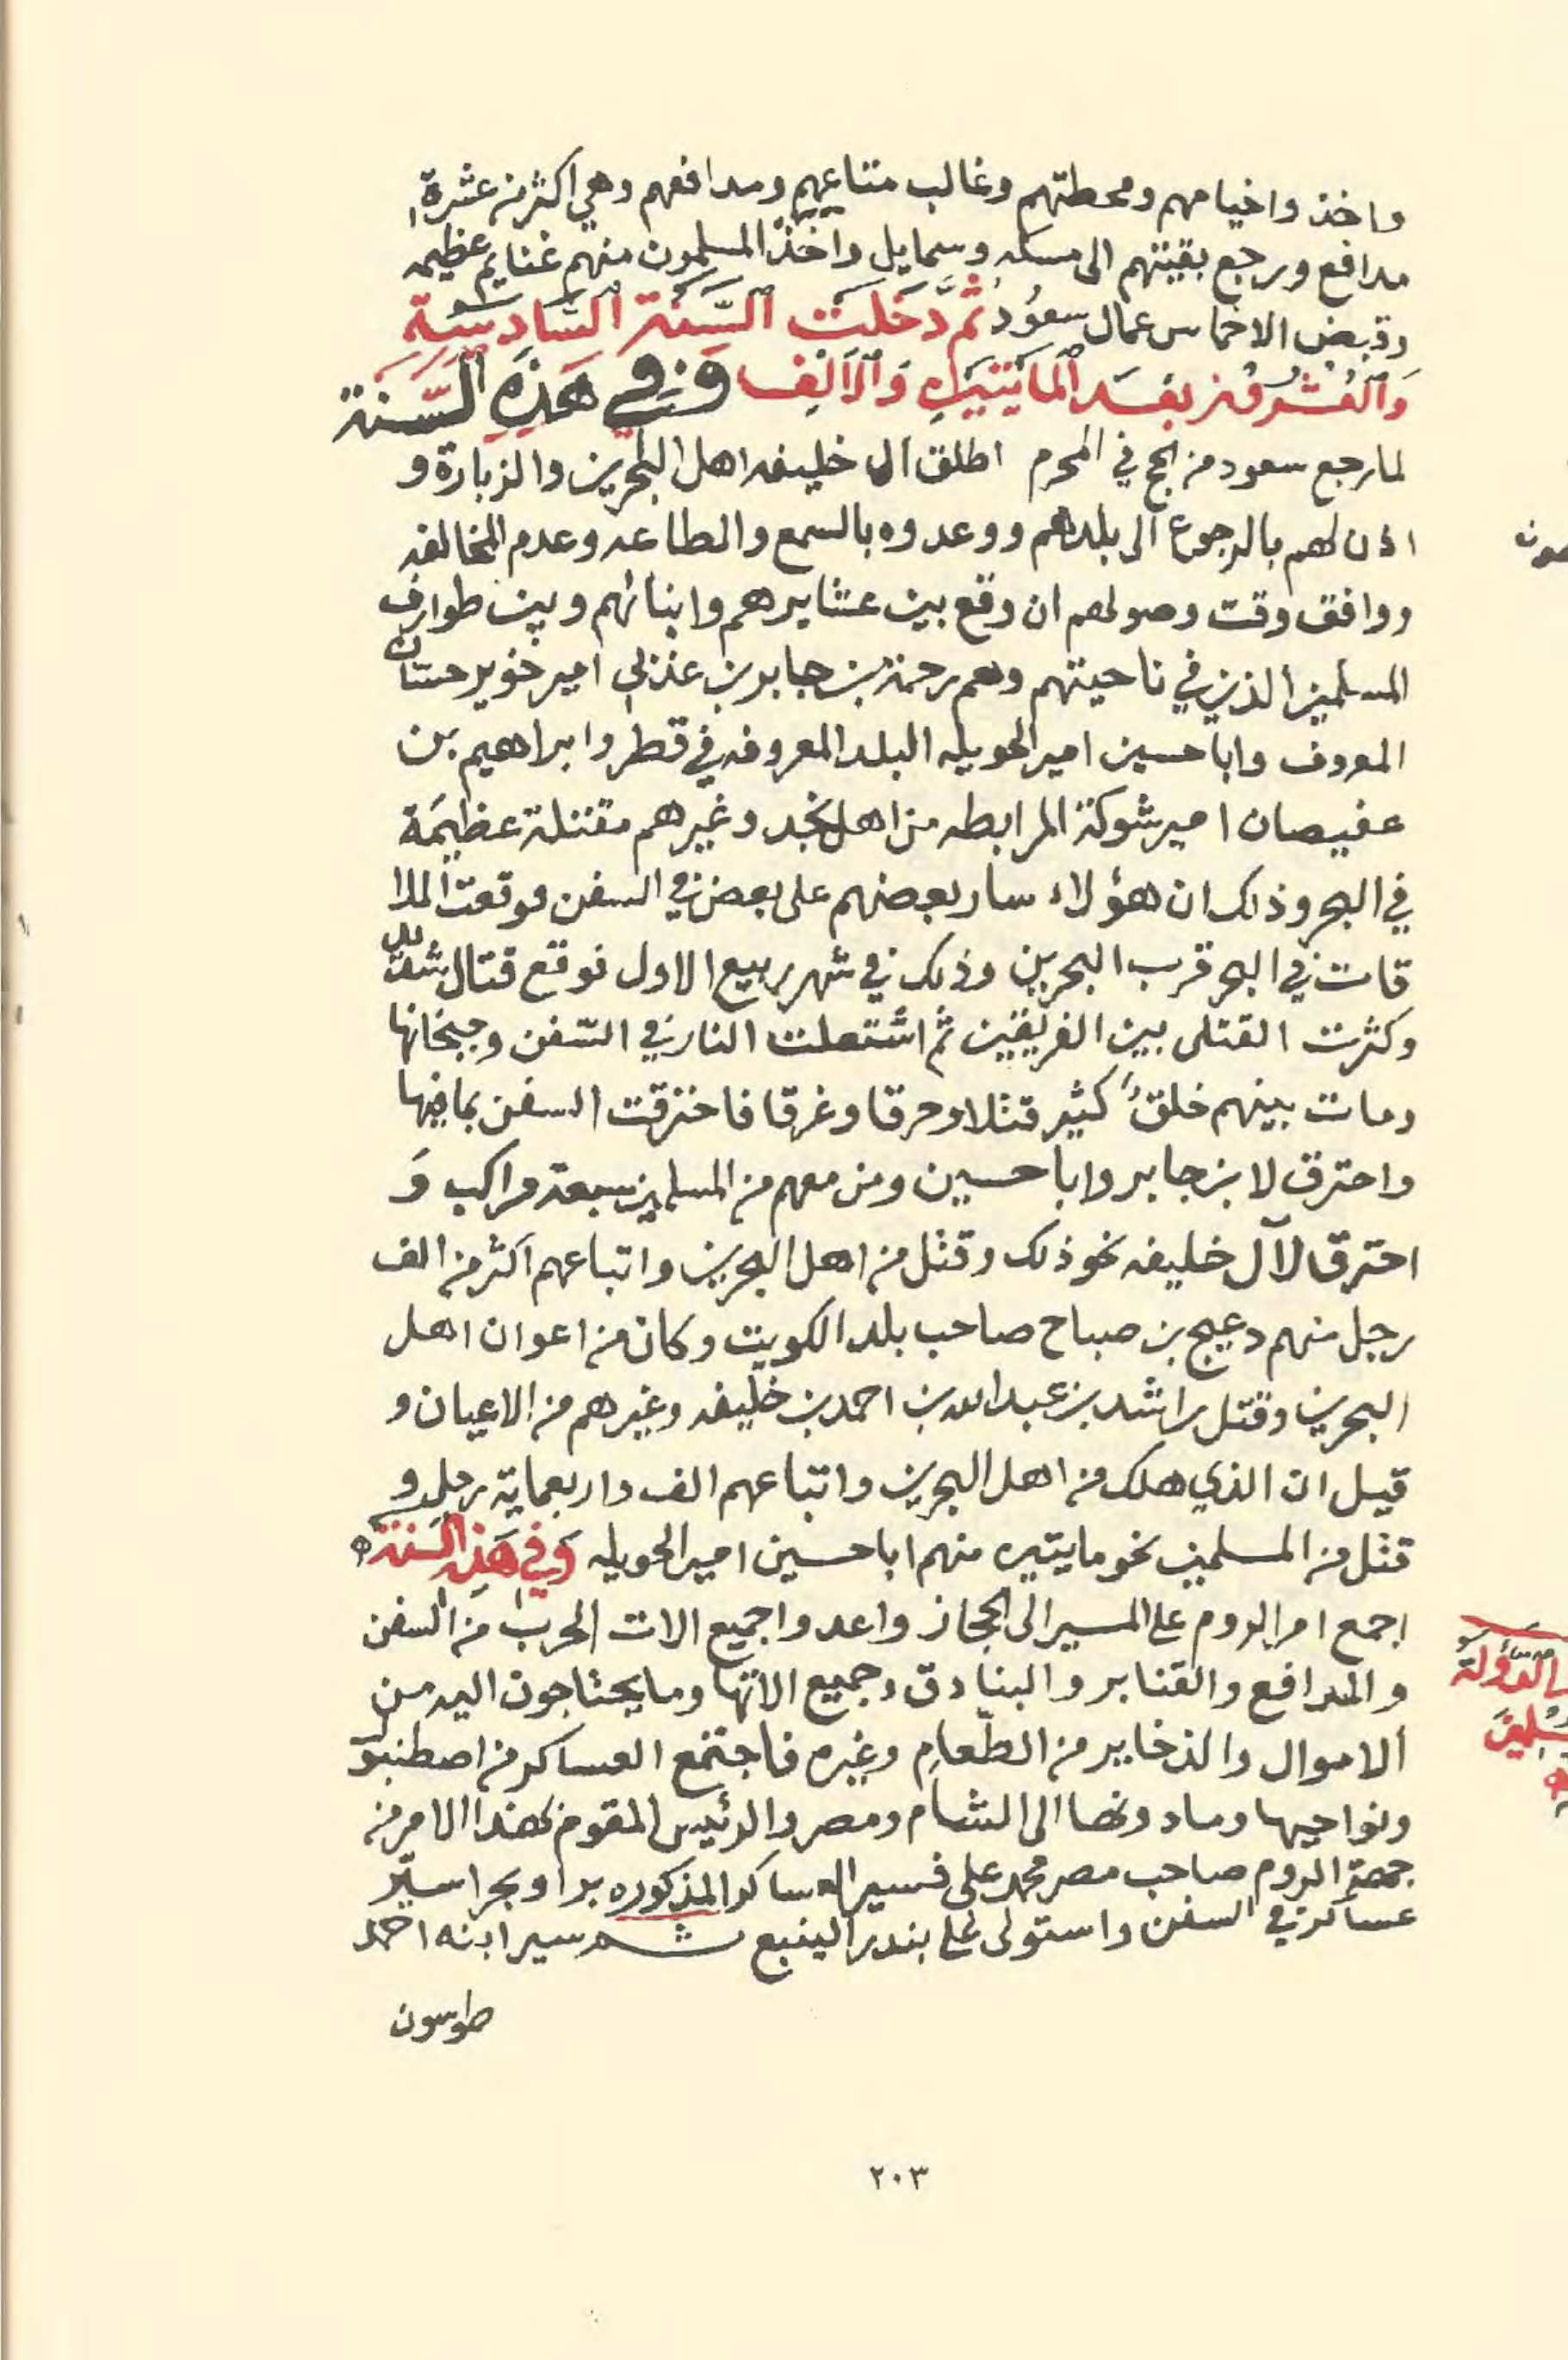 واخذ واخيامهم ومحطتهم وغالب متاعهم ومدافعهم وهي اكثر من عشرة
مدافع ورجع بقيتهم الى مسكه وسمايل واخذ المسلمون منهم غنايم عظيمه
وقبض الاخماس عمال سعود ثُمَّ دَخَلَتْ السَّنَة السَّادِسَة
وَالعُشرون بَعْد المَايتَيْنِ وَالاَلْف وَفي هَذِهِ السَّنة
لما رجع سعود من الحج في المحرم اطلق ال خليفه اهل البحرين والزبارة و
اذن لهم بالرجوع الى بلدهم ووعدوه بالسمع والطاعه وعدم المخالفه
ووافق وقت وصولهم ان وقع بين عشايرهم وابنائهم وبين طوارف
المسلمين الذين في ناحيتهم وهم رحمة بن جابر بن عذبي امير خوير حسان
المعروف وابا حسين امير الحويله البلد المعروفه في قطر وابراهيم بن
عفيصان امير شوكة المرابطه من اهل نجد وغيرهم مقتلة عظيمَة
في البحر وذلك ان هؤلاء سار بعضهم على بعض في السفن فوقعت الملا
قات في البحر قرب البحرين وذلك في شهر ربيع الاول فوقع قتال شديد
وكثرت القتلى بين الفريقين ثم اشتعلت النار في السّفن وجبخانها
ومات بينهم خلقٌ كثير قتلا وحرقا وغرقا فاحترقت السفن بما فيها
واحترق لابن جابر وابا حسين ومن معهم من المسلمين سبعة مراكب وَ
احترق لآل خليفه نحو ذلك وقتل من اهل البحرين واتباعهم اكثر من الف
رجل منهم دعيج بن صباح صاحب بلد الكويت وكان من اعوان اهل
البحرين وقتل راشد بن عبدالله بن احمد بن خليفه وغيرهم من الاعيان و
قيل ان الذي هلك من اهل البحرين واتباعهم الف واربعماية رجل و
قتل من المسلمين نحو مايتين منهم ابا حسين امير الحويله وَفي هَذه السَّنة
اجمع امر الروم على المسير الى الحجاز واعدوا جميع الات الحرب من السفن
والمدافع والقنابر والبنادق وجميع الاتها وما يحتاجون اليه من
الاموال والذخاير من الطّعام وغيره فاجتمع العساكر من اصطنبول
ونواحيها وما دونها الى الشام ومصر والرئيس المقوم لهذا الامر من
جهة الروم صاحب مصر محمد علي فسير العساكر المذكوره برا وبحرا سيّر
عساكر في السفن واستولى على بندر الينبع ثم سير ابنه احمد
طوسون
٢٠٣